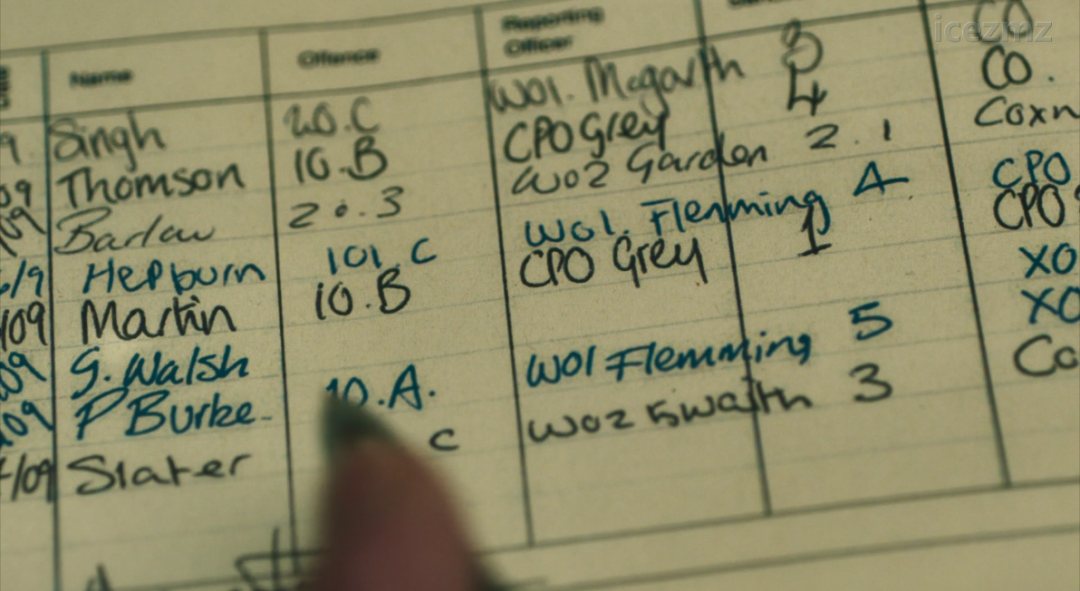 icezmz
Name Offence Reporting Officer
9 Singh 20.C WO1. Mcgarth 3 CO.
09 Thomson 10.B CPO Grey 4 Coxn
09 Barlow 20.3 WO2 Garden 2.1 CPO
6/9 Hepburn 101.C WO1. Flemming 4 CPO
09 Martin 10.B CPO Grey 1 XO
09 G. Walsh XO
09 P Burke 10.A. WO1 Flemming 5 Co
/09 Slater C WO2 Swaith 3